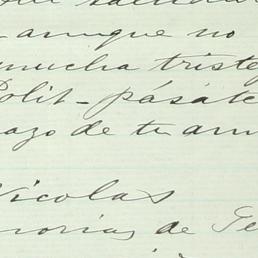 aunque no
mucha triste
Polit - pásate
azo de tu am
Nicolas
orias de Ge